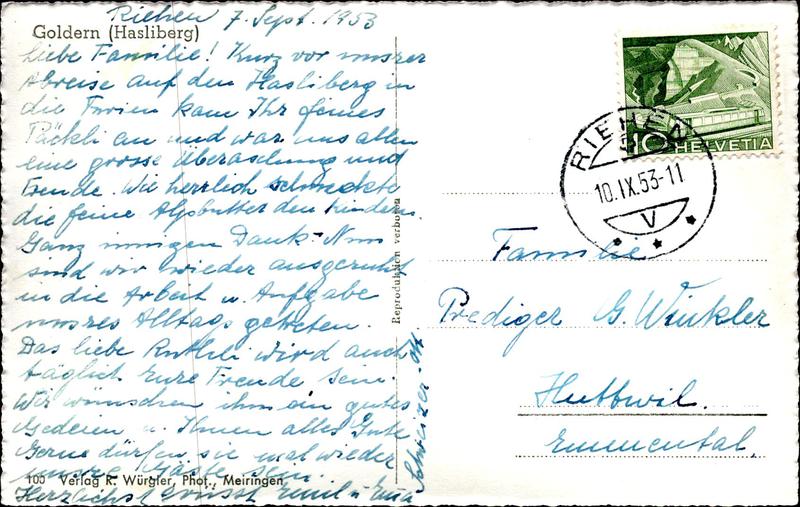 Riehen 7. Sept. 1953
Goldern (Hasliberg)
Liebe Familie! Kurz vor unsrer
Abreise auf den Hasliberg in
die Ferien kam Ihr feines
Päckli an und war uns allen
eine grosse Überaschung und
Freude. Wie herrlich schmeckte
die feine Alpbutter den Kindern
Ganz innigen Dank - Nun
sind wir wieder ausgeruht
in die Arbeit u. Aufgabe
unsres Alltags getreten.
Das liebe Ruthli wird auch
täglich Eure Freude sein.
Wir wünschen ihm ein gutes
Gedeien u. Ihnen alles Gute
Gerne dürfen sie mal wieder
unsre Gäste sein.
100 Verlag R. Würgler, Phot., Meiringen
Herzlichst grüsst Emil u. Erna
Schweizer-Ott
Reproduktion verboten
HELVETIA
10
RIEHEN
10.IX.53-11
V
Familie
Prediger G. Winkler
Huttwil.
Emmental.